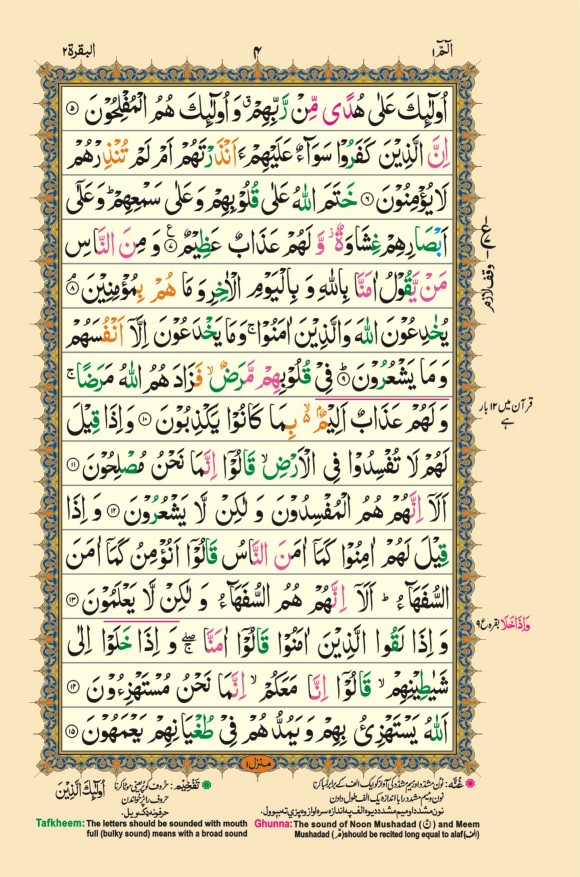 البقرة ٢
٤
الٓمّٓ ١
اُولٰٓئِكَ عَلٰى هُدًى مِّنْ رَّبِّهِمْ ۙ وَ اُولٰٓئِكَ هُمُ الْمُفْلِحُوْنَ ٥
اِنَّ الَّذِيْنَ كَفَرُوْا سَوَآءٌ عَلَيْهِمْ ءَاَنْذَرْتَهُمْ اَمْ لَمْ تُنْذِرْهُمْ
لَا يُؤْمِنُوْنَ ٦ خَتَمَ اللّٰهُ عَلٰى قُلُوْبِهِمْ وَ عَلٰى سَمْعِهِمْ ؕ وَ عَلٰٓى
اَبْصَارِهِمْ غِشَاوَةٌ ؗ وَّ لَهُمْ عَذَابٌ عَظِيْمٌ ٧ وَ مِنَ النَّاسِ
مَنْ يَّقُوْلُ اٰمَنَّا بِاللّٰهِ وَ بِالْيَوْمِ الْاٰخِرِ وَ مَا هُمْ بِمُؤْمِنِيْنَ ٨
يُخٰدِعُوْنَ اللّٰهَ وَ الَّذِيْنَ اٰمَنُوْا ۚ وَ مَا يَخْدَعُوْنَ اِلَّاۤ اَنْفُسَهُمْ
وَ مَا يَشْعُرُوْنَ ٩ فِيْ قُلُوْبِهِمْ مَّرَضٌ ۙ فَزَادَهُمُ اللّٰهُ مَرَضًا ۚ
وَ لَهُمْ عَذَابٌ اَلِيْمٌۢ ۙ بِمَا كَانُوْا يَكْذِبُوْنَ ١٠ وَ اِذَا قِيْلَ
لَهُمْ لَا تُفْسِدُوْا فِى الْاَرْضِ ۙ قَالُوْۤا اِنَّمَا نَحْنُ مُصْلِحُوْنَ ١١
اَلَاۤ اِنَّهُمْ هُمُ الْمُفْسِدُوْنَ وَ لٰكِنْ لَّا يَشْعُرُوْنَ ١٢ وَ اِذَا
قِيْلَ لَهُمْ اٰمِنُوْا كَمَاۤ اٰمَنَ النَّاسُ قَالُوْۤا اَنُؤْمِنُ كَمَاۤ اٰمَنَ
السُّفَهَآءُ ؕ اَلَاۤ اِنَّهُمْ هُمُ السُّفَهَآءُ وَ لٰكِنْ لَّا يَعْلَمُوْنَ ١٣
وَ اِذَا لَقُوا الَّذِيْنَ اٰمَنُوْا قَالُوْۤا اٰمَنَّا ۖۚ وَ اِذَا خَلَوْا اِلٰى
شَيٰطِيْنِهِمْ ۙ قَالُوْۤا اِنَّا مَعَكُمْ ۙ اِنَّمَا نَحْنُ مُسْتَهْزِءُوْنَ ١٤
اَللّٰهُ يَسْتَهْزِئُ بِهِمْ وَ يَمُدُّهُمْ فِيْ طُغْيَانِهِمْ يَعْمَهُوْنَ ١٥
وقف لازم
قرآن میں ۱۲ بار
ہے
وَاِذَا خَلَا بقرہ ع ۹
منزل ١
اُولٰٓئِكَ الَّذِيْنَ
Tafkheem: The letters should be sounded with mouth
full (bulky sound) means with a broad sound
Ghunna: The sound of Noon Mushadad (نّ) and Meem
Mushadad (مّ) should be recited long equal to alaf (الف)